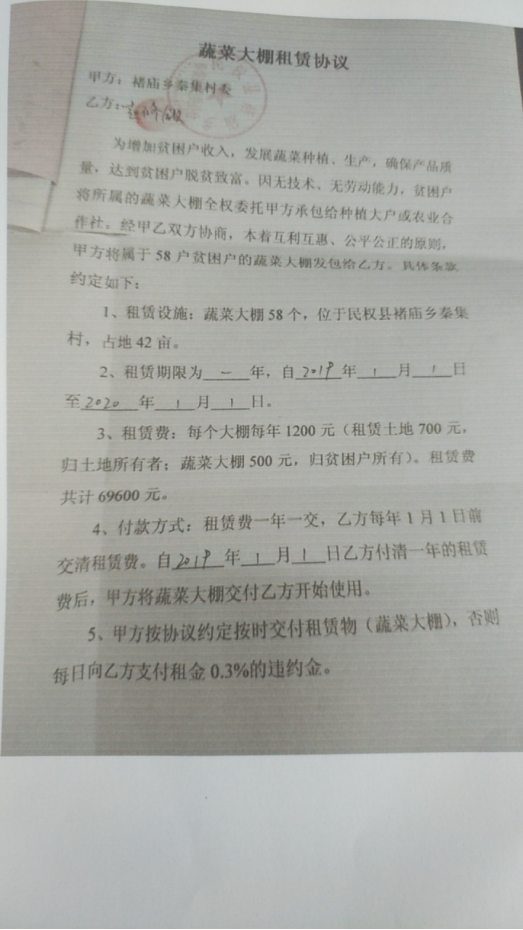 蔬菜大棚租赁协议
甲方：褚庙乡秦集村委
乙方：
为增加贫困户收入，发展蔬菜种植、生产，确保产品质
量，达到贫困户脱贫致富。因无技术、无劳动能力，贫困户
将所属的蔬菜大棚全权委托甲方承包给种植大户或农业合
作社。经甲乙双方协商，本着互利互惠、公平公正的原则，
甲方将属于58户贫困户的蔬菜大棚发包给乙方。具体条款
约定如下：
1、租赁设施：蔬菜大棚58个，位于民权县褚庙乡秦集
村，占地42亩。
2、租赁期限为一年，自2019年1月1日
至2020年1月1日。
3、租赁费：每个大棚每年1200元（租赁土地700元，
归土地所有者；蔬菜大棚500元，归贫困户所有）。租赁费
共计69600元。
4、付款方式：租赁费一年一交，乙方每年1月1日前
交清租赁费。自2019年1月1日乙方付清一年的租赁
费后，甲方将蔬菜大棚交付乙方开始使用。
5、甲方按协议约定按时交付租赁物（蔬菜大棚），否则
每日向乙方支付租金0.3%的违约金。